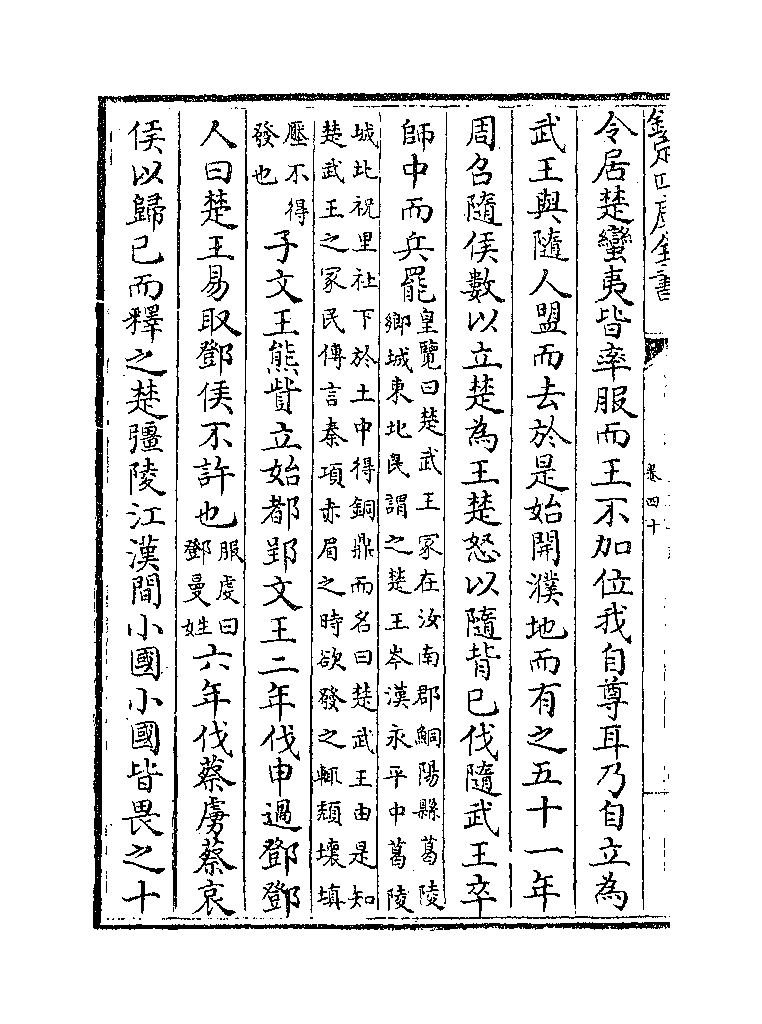 欽定四庫全書
卷四十
令居楚蠻夷皆率服而王不加位我自尊耳乃自立為
武王與隨人盟而去於是始開濮地而有之五十一年
周召隨侯數以立楚為王楚怒以隨背已伐隨武王卒
師中而兵罷皇覽曰楚武王冢在汝南郡鮦陽縣葛陵鄉城東北民謂之楚王岑漢永平中葛陵
城北祝里社下於土中得銅鼎而名曰楚武王由是知楚武王之冢民傳言秦項赤眉之時欲發之輒頹壞填
壓不得發也子文王熊貲立始都郢文王二年伐申過鄧鄧
人曰楚王易取鄧侯不許也服虔曰鄧曼姓六年伐蔡虜蔡哀
侯以歸已而釋之楚彊陵江漢間小國小國皆畏之十